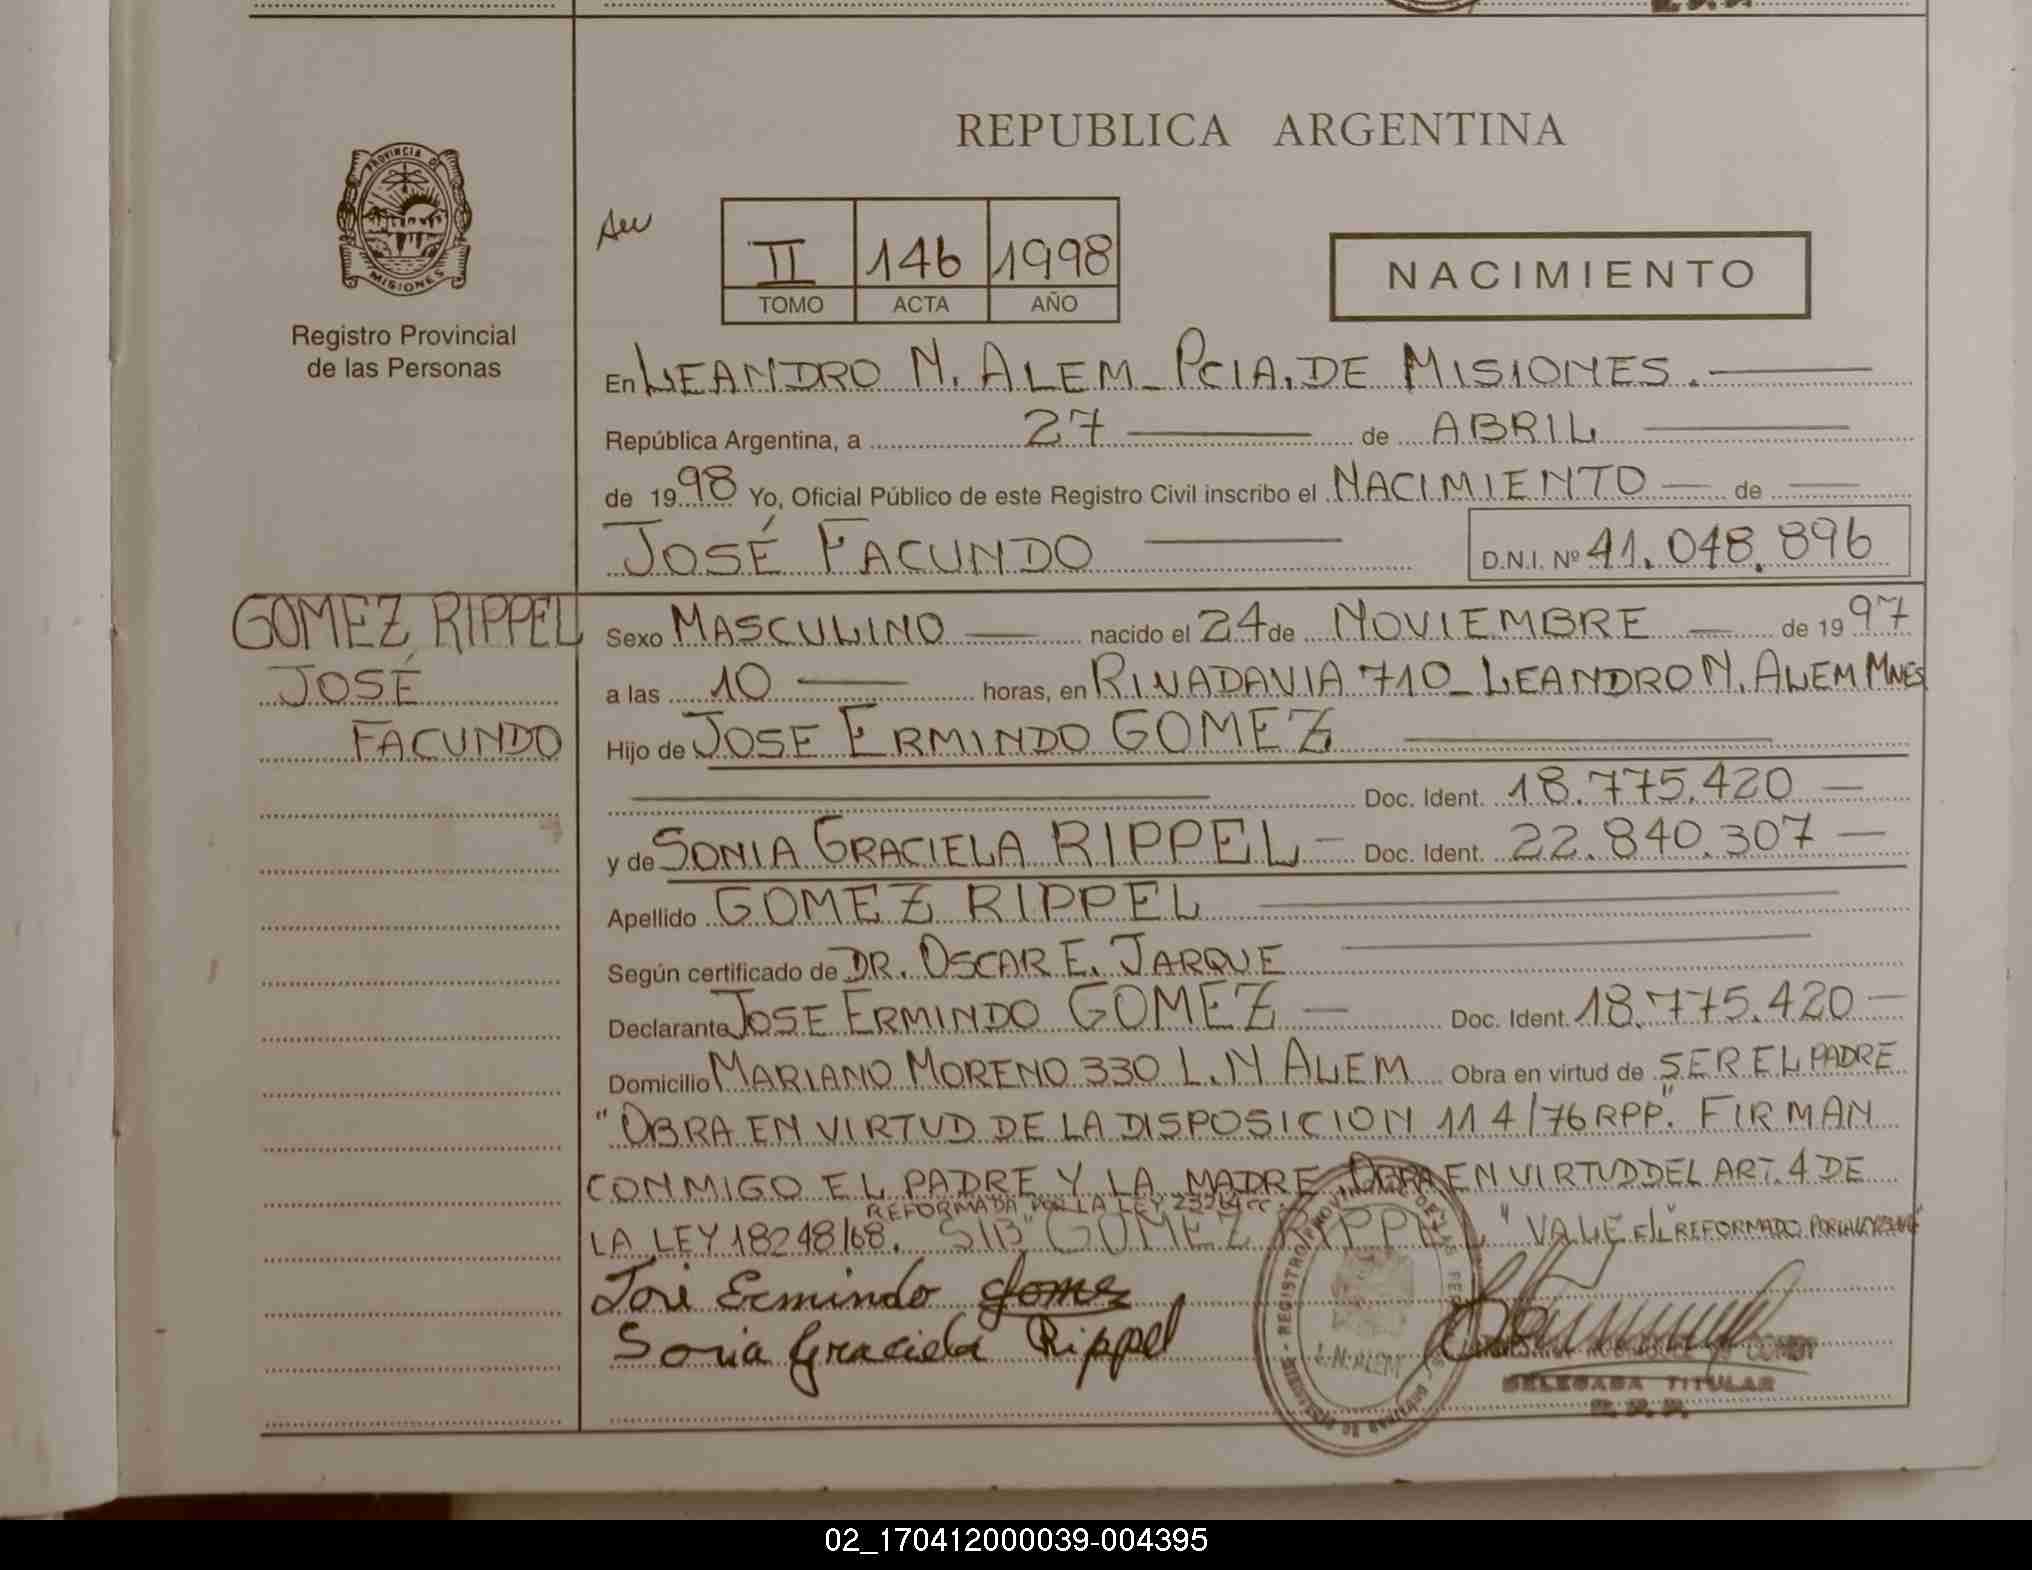 REPUBLICA ARGENTINA
PROVINCIA DE
MISIONES
Registro Provincial
de las Personas
II 146 1998
TOMO ACTA AÑO
NACIMIENTO
En LEANDRO N. ALEM_PCIA. DE MISIONES.
República Argentina, a 27 de ABRIL
de 1998 Yo, Oficial Público de este Registro Civil inscribo el NACIMIENTO de
JOSÉ FACUNDO D.N.I. Nº 41.048.896
GOMEZ RIPPEL
JOSÉ
FACUNDO
Sexo MASCULINO nacido el 24 de NOVIEMBRE de 1997
a las 10 horas, en RIVADAVIA 710_LEANDRO N. ALEM MNES
Hijo de JOSE ERMINDO GOMEZ
Doc. Ident. 18.775.420
y de SONIA GRACIELA RIPPEL Doc. Ident. 22.840.307
Apellido GOMEZ RIPPEL
Según certificado de DR. OSCAR E. JARQUE
Declarante JOSE ERMINDO GOMEZ Doc. Ident. 18.775.420
Domicilio MARIANO MORENO 330 L.N ALEM Obra en virtud de SER EL PADRE
"OBRA EN VIRTUD DE LA DISPOSICION 114/76 RPP". FIRMAN
CONMIGO EL PADRE Y LA MADRE OBRA EN VIRTUD DEL ART. 4 DE
REFORMADA POR LA LEY
LA LEY 18248/68. S/B "GOMEZ RIPPEL" VALE E/L "REFORMADO POR LA LEY
José Ermindo Gomez
Sonia Graciela Rippel
L.N. ALEM
DELEGADA TITULAR
R.P.P.
02_170412000039-004395